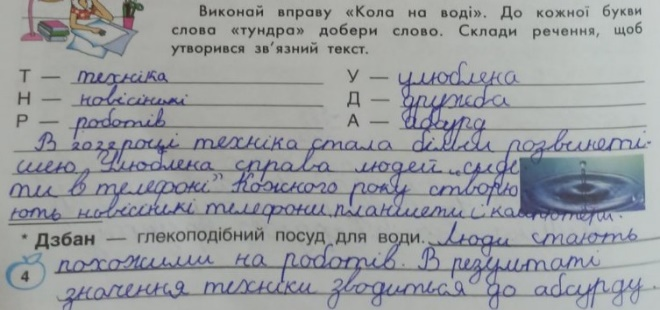 Виконай вправу «Кола на воді». До кожної букви
слова «тундра» добери слово. Склади речення, щоб
утворився зв'язний текст.
Т — техніка У — улюблена
Н — новісінькі Д — дружба
Р — роботів А — абсурд
В 2022 році техніка стала більш розвинеті-
шею. Улюблена справа людей „сиде
ти в телефоні" Кожного року створю
ють новісінькі телефони, планшети і компютери.
* Дзбан — глекоподібний посуд для води. Люди стають
4 похожими на роботів. В результаті
значення техніки зводиться до абсурду.